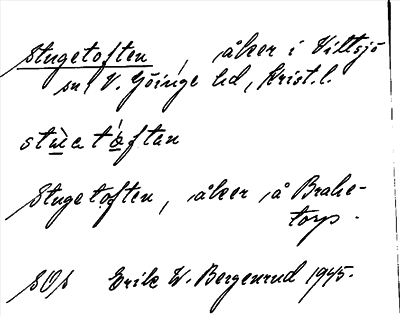 Stugetoften, åker i Vittsjö
sn, V. Göinge hd, Krist.l.
Stugetoften, åker å Brahe-
torp.
SOS Erik W. Bergenrud 1945.